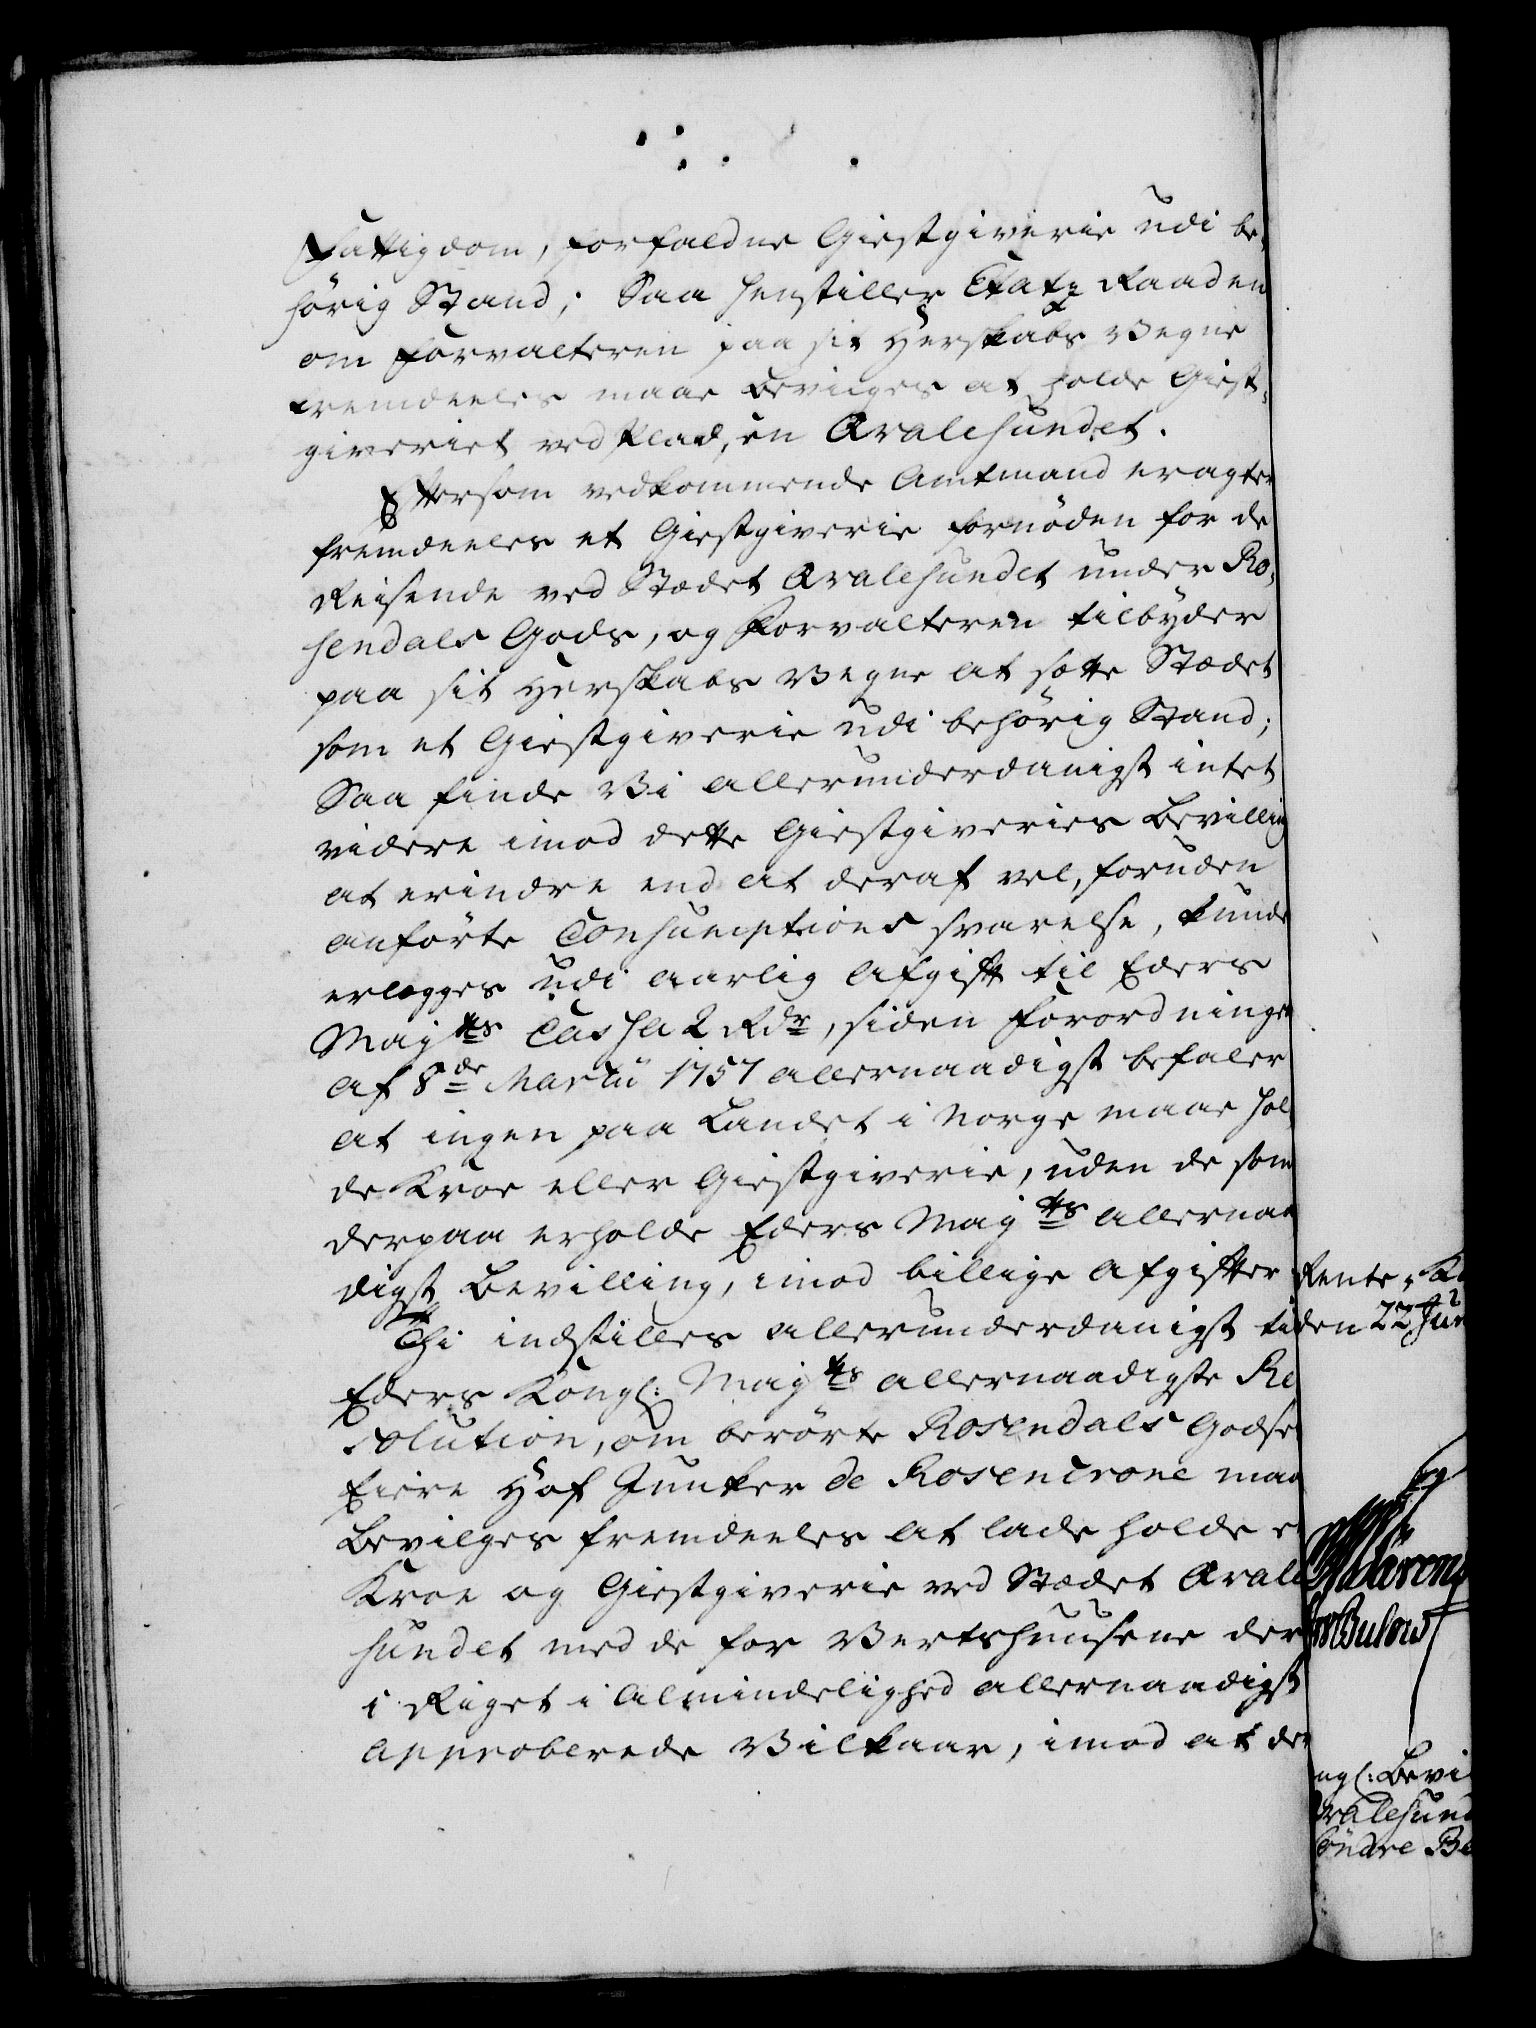 Fattigdom, forfaldne Giestgiverie udi be-
hörig Stand; Saa henstiller Etatz Raaden
om Forvalteren paa sit Herskabs Vegne
fremdeeles maae bevilges at holde Giest-
giveriet ved Pladsen Qvalesundet.
Eftersom vedkommende Amtmand eragter
fremdeeles et Giestgiverie fornöden for de
Reisende ved Stædet Qvalesundet under Ro-
sendals Gods, og Forvalteren tilbyder
paa sit Herskabs Vegne at sætte Stædet
som et Giestgiverie udi behörig Stand;
Saa finde Vi allerunderdanigst intet
videre imod dette Giestgiveries Bevilling
at erindre end at deraf vel, foruden
anförte Consumptions svarelse, kunde
erlægges udi aarlig Afgift til Eders
Majts Cassa 2 Rdr, siden Forordningen
af 8de Martii 1757 allernaadigst befaler
at ingen paa Landet i Norge maae hol-
de Kroe eller Giestgiverie, uden de som
derpaa erholde Eders Majts allernaa
digst Bevilling, imod billige Afgifter
Thi indstilles allerunderdanigst til
Eders Kongl: Majts allernaadigste Re
solution, om berörte Rosendals Godses
Eiere Hof Junker de Rosencrone maa
bevilges fremdeeles at lade holde e
Kroe og Giestgiverie ved Stædet Qvale
sundet med de for Vertshuusene der
i Riget i Almindelighed allernaadigst
approberede Vilkaar, imod at der
Rente, Ka
den 22 Jun
Bulow
ngl: Bevi
valesund
öndre Be